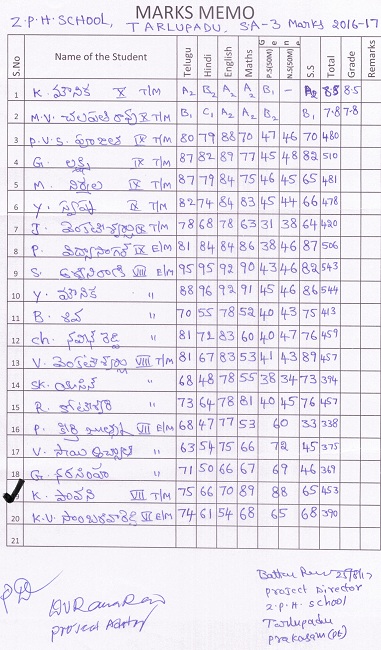 MARKS MEMO
Z.P.H. SCHOOL, TARLUPADU, SA-3 Marks 2016-17
S.No Name of the Student Telugu Hindi English Maths General P.S(50M) N.S(50M) S.S Total Grade Remarks
1 K. మౌనిక X T/M A2 B2 A2 A2 B1 - A2 8.8 8.5
2 M.V. X T/M B1 C1 A2 A2 B2 B1 7.8 7.8
3 P.V.S. IX T/M 80 79 88 70 47 46 70 480
4 G. లక్ష్మి IX T/M 87 82 89 77 45 48 82 510
5 M. నిర్మల IX T/M 87 79 84 75 46 45 65 481
6 Y. స్వప్న IX T/M 82 74 84 83 45 44 66 478
7 IX T/M 78 68 78 63 31 38 64 420
8 P. IX E/M 81 84 84 86 38 46 87 506
9 S. VIII E/M 95 95 92 90 43 46 82 543
10 Y. మౌనిక " 88 96 92 91 45 46 86 544
11 B. శివ " 70 55 78 52 40 43 75 413
12 Ch. నవీన్ రెడ్డి " 81 72 83 60 40 47 76 459
13 V. వెంకటేశ్వర్లు VIII T/M 81 67 83 53 41 43 89 457
14 SK. యాసిన్ " 68 48 78 55 38 34 73 394
15 R. కోటేశ్వరి " 73 64 78 81 40 45 76 457
16 P. VII E/M 68 47 77 53 60 33 338
17 V. సాయి " 63 54 75 66 72 45 375
18 G. నరసింహ " 71 50 66 67 69 46 369
K. పావని VII T/M 75 66 70 89 88 65 453
20 K.V. VI E/M 74 61 54 68 65 68 390
21
25/8/17
Project Director
Z.P.H. School
Tarlupadu
Prakasam (Dt)